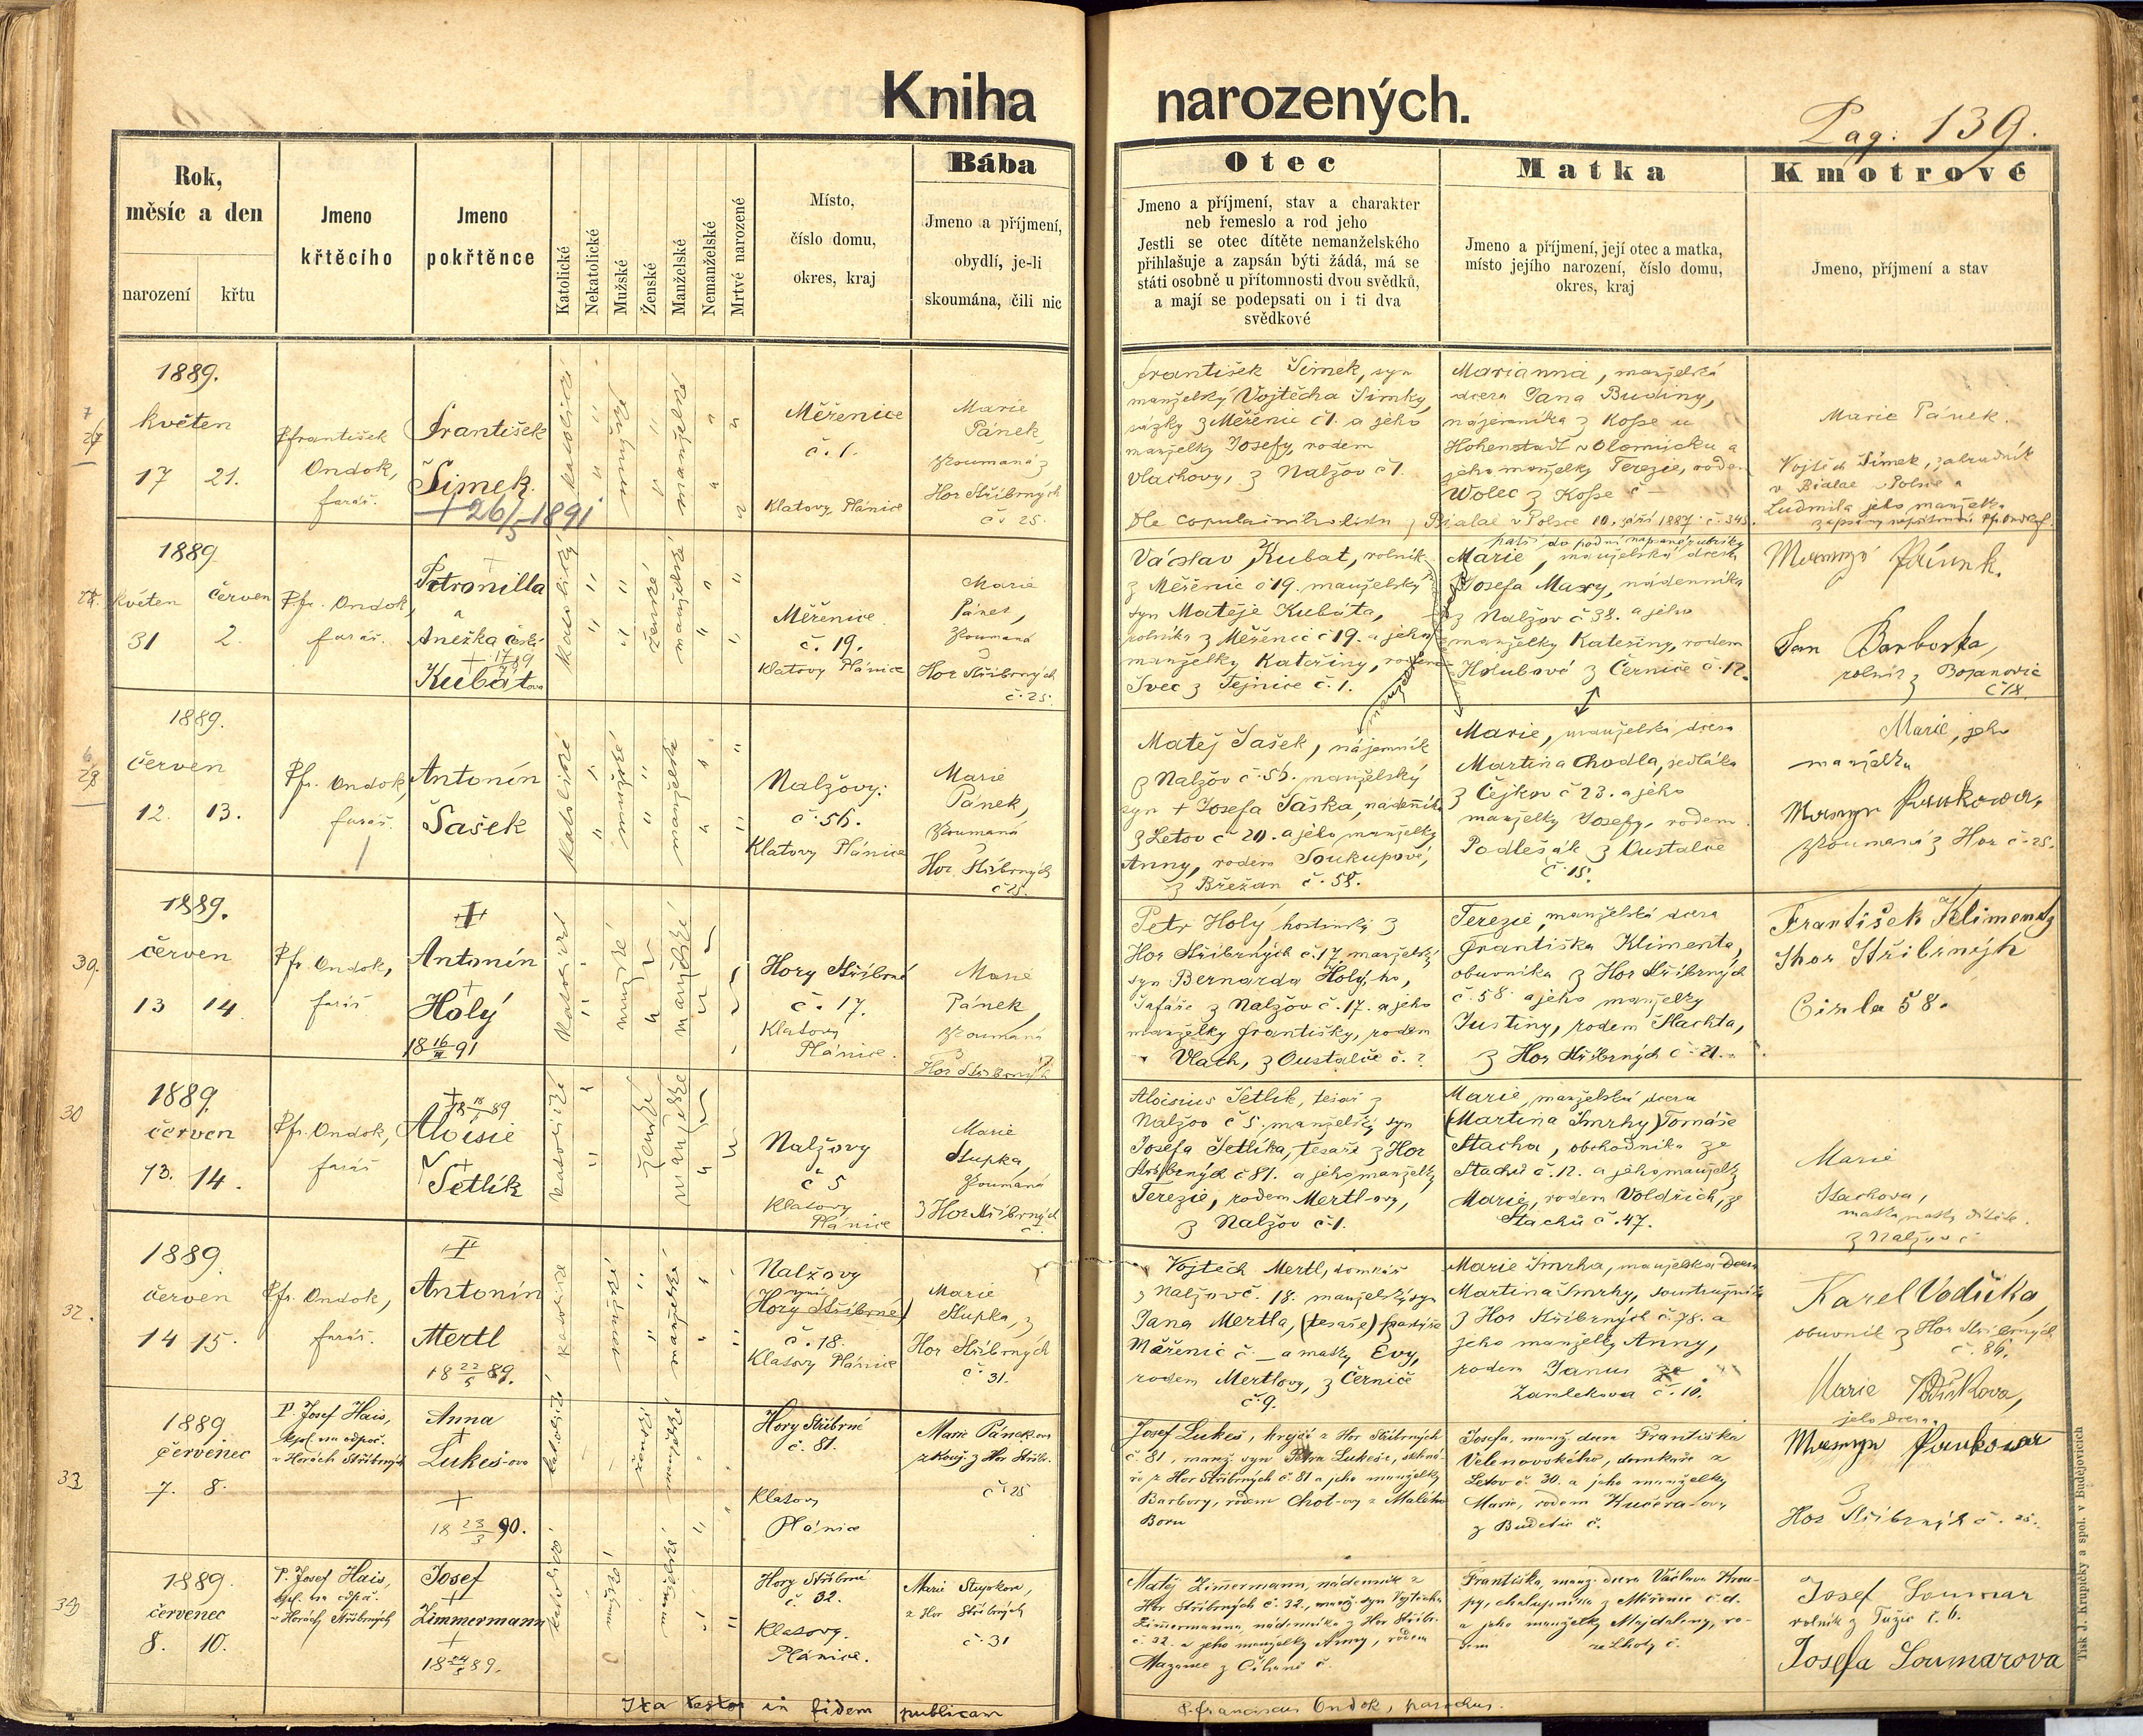 Kniha narozených.
Pag: 139.
Rok,
měsíc a den
narození křtu
Jmeno
křtěcího
Jmeno
pokřtěnce
Katolické
Nekatolické
Mužské
Ženské
Manželské
Nemanželské
Mrtvé narozené
Místo,
číslo domu,
okres, kraj
Bába
Jmeno a příjmení,
obydlí, je-li
skoumána, čili nic
Otec
Jmeno a příjmení, stav a charakter
neb řemeslo a rod jeho
Jestli se otec dítěte nemanželského
přihlašuje a zapsán býti žádá, má se
státi osobně u přítomnosti dvou svědků,
a mají se podepsati on i ti dva
svědkové
Matka
Jmeno a příjmení, její otec a matka,
místo jejího narození, číslo domu,
okres, kraj
Kmotrové
Jmeno, příjmení a stav
1889.
květen
17 21.
Pfrantišek
Ondok,
farář.
František
Šimek
+ 26/5 1891
katolické
mužské
manželské
Měřenice
č. 1.
Klatovy Plánice
Marie
Pánek,
zkoumaná z
Hor Stříbrných
č. 25.
František Šimek, syn
manželský Vojtěcha Šimky,
z Měřenic č 1. a jeho
manželky Josefy, rodem
Vlachovy, z Nalžov č 1.
Marianna, manželská
dcera Jana Budiny,
nájemníka z Kosse u
Hohenstadt v Olomücku a
jeho manželky Terezie, rodem
Wolec z Kosse č –
Bialae v Polsce 10. září 1887. č. 345.
Marie Pánek.
Vojtěch Šimek, zahradník
v Bialae v Polsce a
Ludmila jeho manželka
1889
květen červen
31 2.
Pfr. Ondok,
farář.
Petronilla
a
Anežka
Kubátova
katolický
ženské
manželské
Měřenice.
č. 19.
Klatovy Plánice
Marie
Pánek,
zkoumaná
z
Hor Stříbrných
č. 25.
Václav Kubat, rolník
z Měřenic č 19. manželský
syn Matěje Kubáta,
rolníka z Měřenic č 19. a jeho
manželky Kateřiny, rodem
Švec z Tejnice č. 1.
Marie, manželská dcera
Josefa Maxy, nádenníka
z Nalžov č 38. a jeho
manželky Kateřiny, rodem
Holubové z Černice č. 12.
Jan Barborka,
rolník z Bojanovic
č 18
1889.
červen
12. 13.
Pfr. Ondok,
farář.
Antonín
Šašek
katolické
mužské
manželské
Nalžovy:
č. 56.
Klatovy Plánice
Marie
Pánek,
zkoumaná
z
Hor Stříbrných
č 25.
Matěj Šašek, nájemník
z Nalžov č. 56. manželský
syn + Josefa Šaška, nádenníka
z Letov č 20. a jeho manželky
Anny, rodem Soukupové,
z Břežan č. 58.
Marie, manželská dcera
Martina Chodla, sedláka
z Čejkov č 23. a jeho
manželky Josefy, rodem
Podlešák z Oustalče
č. 15.
Marie, jeho
manželka
zkoumaná z Hor č. 25.
1889.
červen
13 14
Pfr. Ondok,
farář
Antonín
Holý
18 16/III 91
mužské
manželské
Hory Stříbrné
č. 17.
Klatovy
Plánice.
Marie
Pánek,
zkoumaná
z
Hor Stříbrných
Petr Holý hostinský z
Hor Stříbrných č. 17, manželský
syn Bernarda Holý-ho,
šafáře z Nalžov č. 17. a jeho
manželky Františky, rodem
Vlach, z Oustalče č. ?
Terezie, manželská dcera
Františka Klimenta,
obuvníka z Hor Stříbrných
č. 58. a jeho manželky
Justiny, rodem Šlachta,
z Hor Stříbrných č. 21.
František Kliment z
Hor Stříbrných
Cisla 58.
30
1889.
červen
13. 14.
Pfr. Ondok,
farář
Aloisie
Šetlík
katolické
ženské
manželské
Nalžovy
č 5
Klatovy
Plánice
Marie
Stupka,
zkoumaná
z Hor Stříbrných
č.
Aloisius Šetlík, tesař z
Nalžov č 5. manželský syn
Josefa Šetlíka, tesaře z Hor
Stříbrných č 81. a jeho manželky
Terezie, rodem Mertl-ovy,
z Nalžov č 1.
Marie, manželská dcera
(Martina Smrhy) Tomáše
Stacha, obchodníka ze
Stachů č. 12. a jeho manželky
Marie, rodem Voldřich, ze
Stachů č. 47.
Marie
Stachova,
matka matky dítěte.
z Nalžov č
32.
1889.
červen
14 15.
Pfr. Ondok,
farář.
Antonín
Mertl
18 22/5 89.
katolické
mužské
manželské
Nalžovy
Hory Stříbrné)
č. 18.
Klatovy Plánice
Marie
Stupka, z
Hor Stříbrných
č. 31.
Vojtěch Mertl, domkář
z Nalžov č. 18. manželský syn
Jana Mertla, (tesaře)
Měřenic č _ a matky Evy,
rodem Mertlovy, z Černice
č. 9.
Marie Smrha, manželská dcera
Martina Smrhy, soustružníka
z Hor Stříbrných č. 78. a
jeho manželky Anny,
rodem Janus ze
Zamlekova č. 10.
Karel Vodička,
obuvník z Hor Stříbrných
č. 86.
Marie
jeho dcera
33
1889
červenec
7. 8.
P. Josef Hais,
kpl. na odpoč.
v Horách Stříbrných
Anna
Lukeš-ova
+
18 23/3 90.
katolické
ženské
manželské
Hory Stříbrné
č. 81.
Klatovy
Plánice
Marie Pánek-ova
zkouš. z Hor Stříbr.
č. 25
Josef Lukeš, krejčí z Hor Stříbrných
č. 81, manž. syn Petra Lukeše,
z Hor Stříbrných č 81 a jeho manželky
Barbory, rodem Chot-ovy z Malého
Boru
Josefa, manž. dcera Františka
Velenovského, domkáře z
Letov č. 30. a jeho manželky
Marie, rodem Kučera-ovy
z Budětic č.
z
Hor Stříbrných č. 25.
1889.
červenec
8. 10.
P. Josef Hais,
kpl. na odpoč.
v Horách Stříbrných
Josef
Zimmermann
+
katolické
manželské
Hory Stříbrné
č. 32.
Klatovy.
Plánice.
Marie Stupkova,
z Hor Stříbrných
č. 31
Matěj Zimmermann, nádenník z
Hor Stříbrných č. 32, manž. syn Vojtěcha
Zimmermanna, nádenníka z Hor Stříbr.
č. 32. a jeho manželky Anny, rodem
Františka, manž. dcera Václava Krou-
py, chalupníka z Měřenic č. d.
a jeho manželky Majdaleny, ro-
dem ze Lhoty č.
Josef Soumar
rolník z Tužic č. 6.
Josefa Soumarova
Ita testor in fidem publicam
P. Franciscus Ondok, parochus.
Tisk J. Krupičky a spol. v Budějovicích